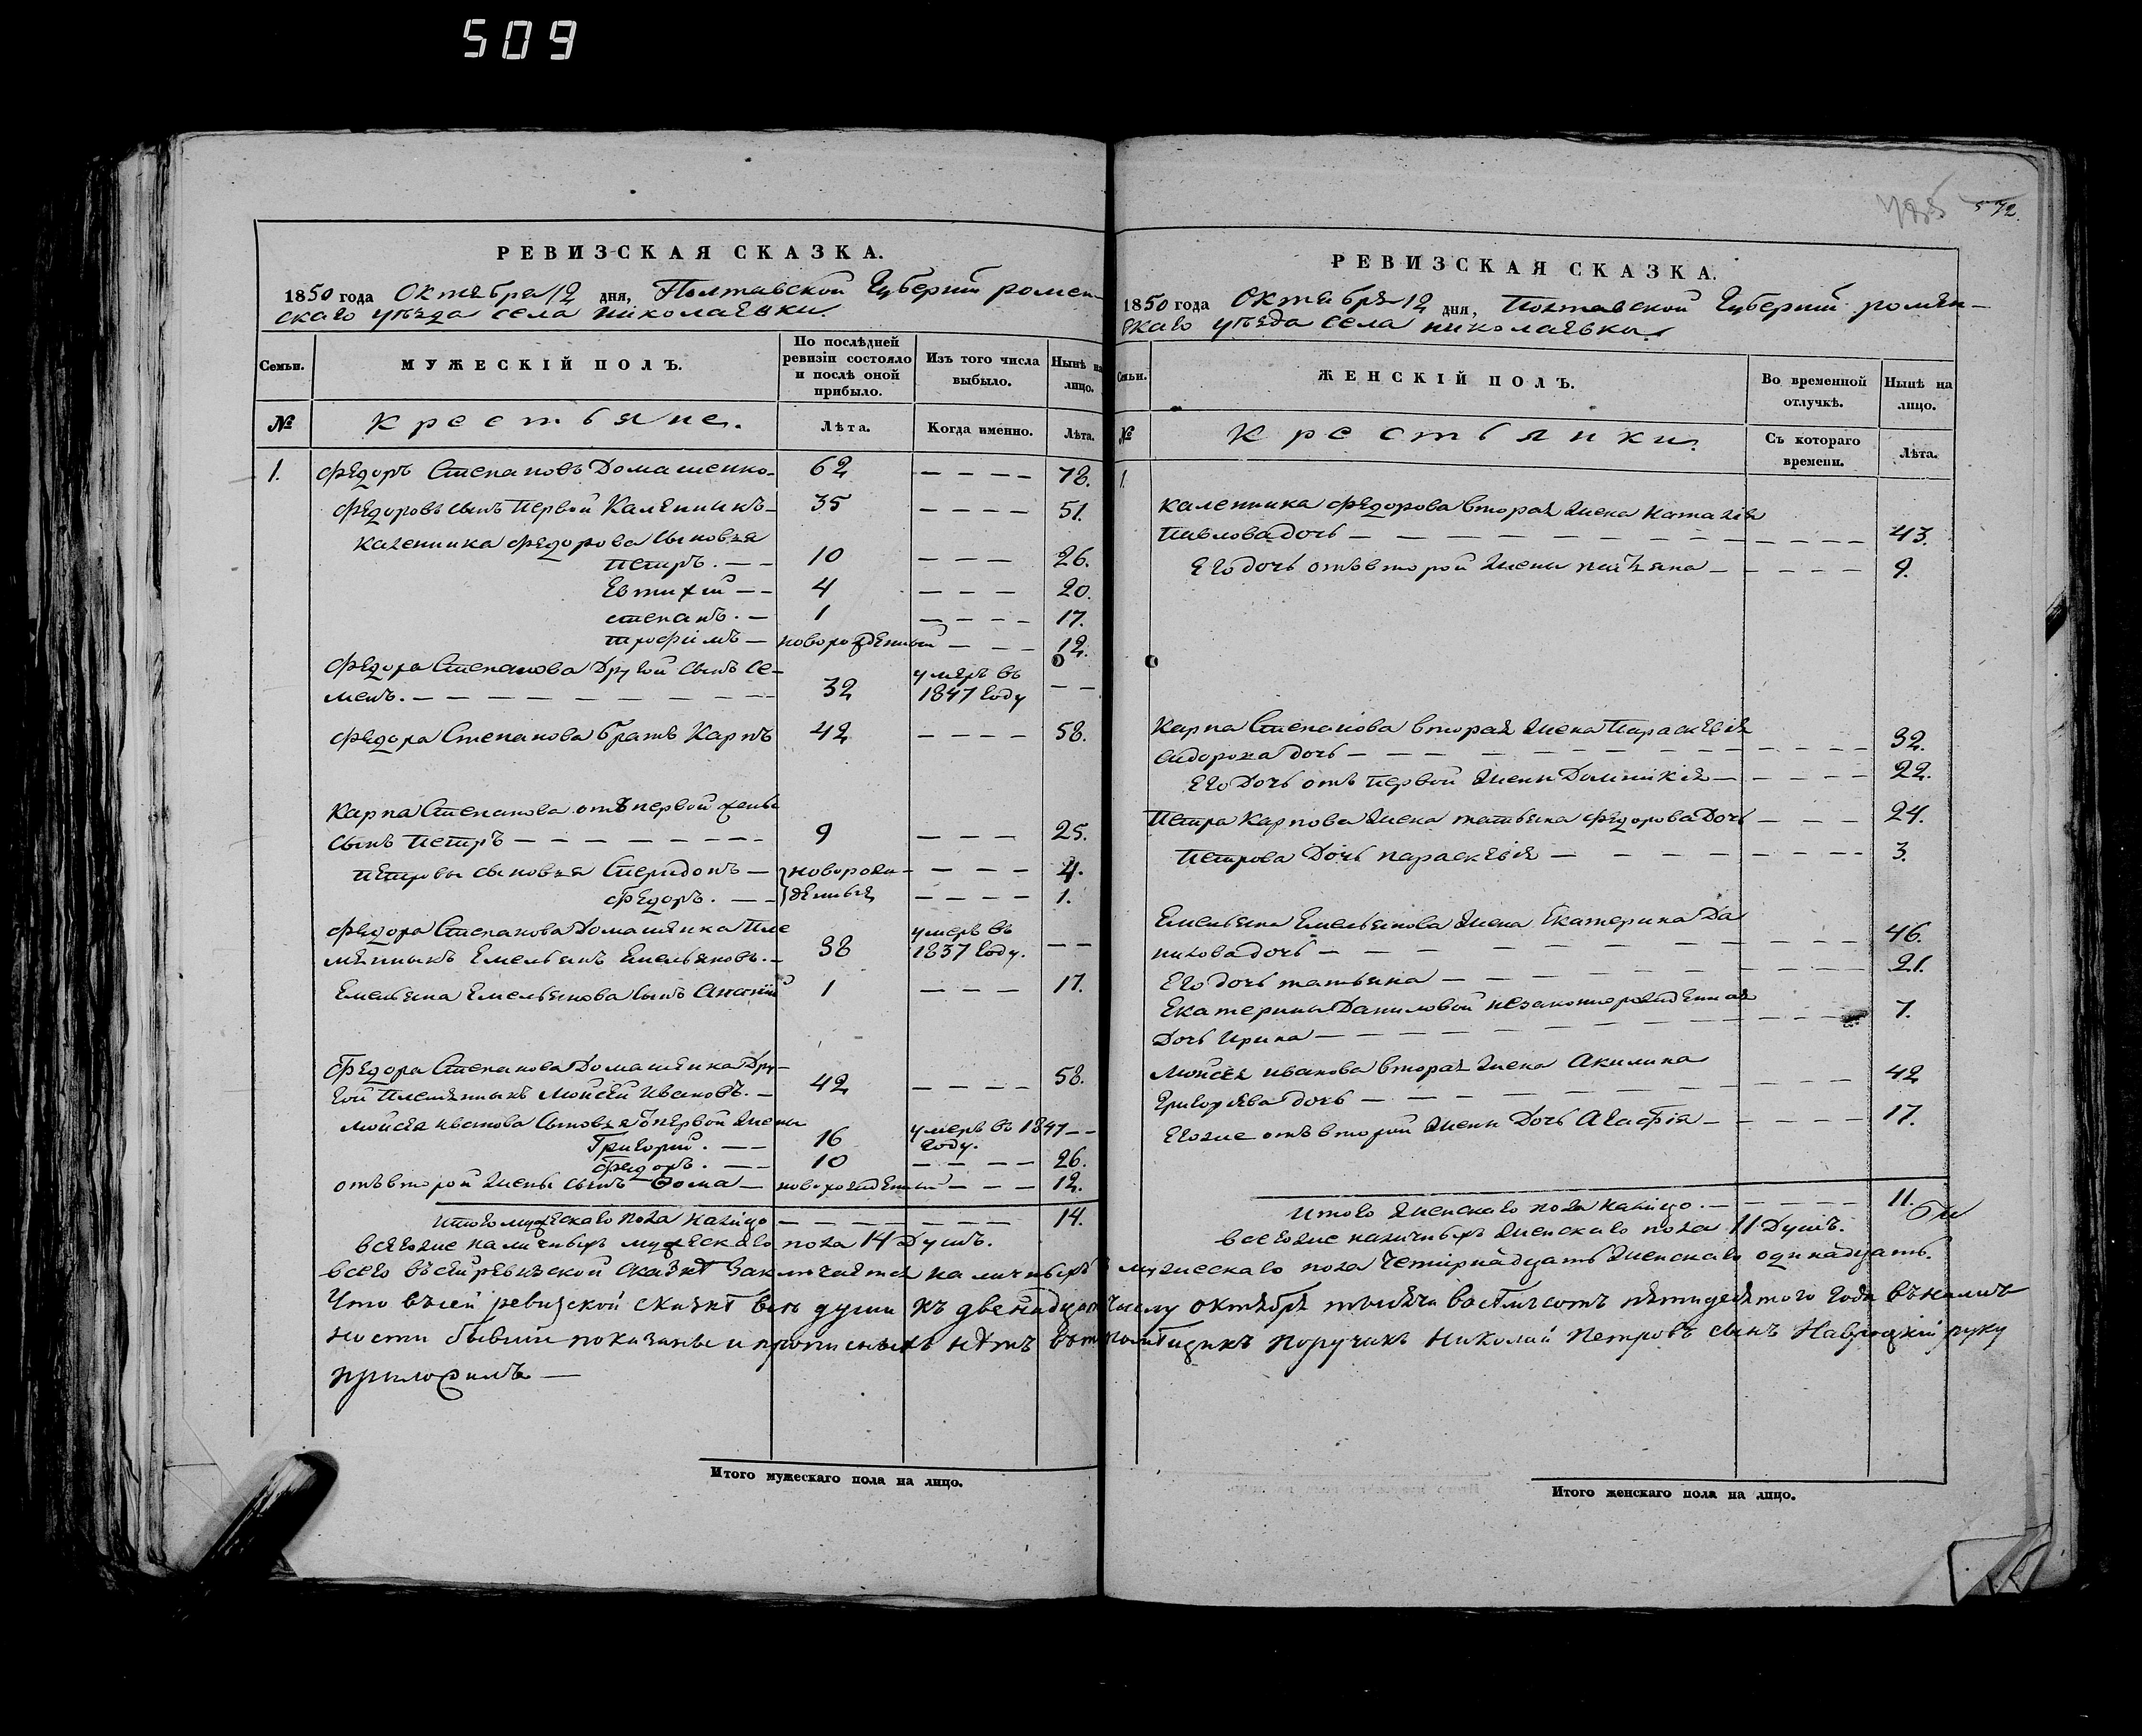 509
572.
РЕВИЗСКАЯ СКАЗКА.
1850 года Октября 12 дня, Полтавской Губерніи ромен-
скаго уѣзда села николаевки
Семьи.
МУЖЕСКІЙ ПОЛЪ.
По послѣдней ревизіи состояло и послѣ оной прибыло.
Изъ того числа выбыло.
Нынѣ на лицо.
№
Крестьяне.
Лѣта.
Когда именно.
Лѣта.
1. Федоръ Степановъ Домашенко- 62 ---- 78.
Федоровъ сынъ первой Каленникъ- 35 ---- 51.
Каленника Федорова сыновья
петръ. -- 10 --- 26.
Евтихій -- 4 --- 20.
степанъ. - 1 ---- 17.
трофімъ - новорожденный --- 12.
Федора Степанова Другой сынъ Се-
менъ. - 32 умеръ въ 1847 году --
Федора Степанова братъ Карпъ 42 ---- 58.
Карпа Степанова отъ первой жены
сынъ петръ - 9 --- 25.
петровы сыновья Спиридонъ - новорож- ---- 4.
Федоръ. -- денныя ---- 1.
Федора Степанова Домашенка Пле
менникъ Емельянъ Емельяновъ. - 38 умеръ въ 1837 году. --
Емельяна Емельянова сынъ Ананій 1 --- 17.
Федора Степанова Домашенка Дру-
гой Племянникъ Мойсей Ивановъ. - 42 ---- 58.
Мойсея иванова сыновья первой жены
Григорий. -- 16 умеръ въ 1847 году. --
Федоръ. -- 10 ---- 26.
отъ второй жены сынъ Фома - новорожденный --- 12.
Итого мужескаго пола налицо ------ 14.
всегоже наличныхъ мужескаго пола 14 Душъ.
РЕВИЗСКАЯ СКАЗКА.
1850 года Октября 12 дня, Полтавской Губерніи ромен-
скаго уѣзда села николаевки.
Семьи.
ЖЕНСКІЙ ПОЛЪ.
Во временной отлучкѣ.
Нынѣ на лицо.
№
Крестьянки.
Съ котораго времени.
Лѣта.
1.
Каленника Федорова вторая жена наталія
Павлова дочь - 43.
Его дочь отъ второй жены - 9.
Карпа Степанова вторая жена Параскевія
сидорова дочь - 32.
Его Дочь отъ первой жены Домникія - 22.
Петра Карпова жена татьяна Федорова Дочь --- 24.
Петрова Дочь параскевія - 3.
Емельяна Емельянова жена Екатерина Да
нилова дочь - 46.
Его дочь татьяна - 21.
Екатерины Даниловой незаконорожденная
Дочь Ирина - 7.
Мойсея иванова вторая жена Акилина
Григорьева дочь - 42
Егоже отъ второй жены Дочь Агафія - 17.
Итого женскаго пола налицо. - 11.
всегоже наличныхъ женскаго пола 11 Душъ.
всего въ сей ревизской сказкѣ заключается наличныхъ мужескаго пола четырнадцать женскаго одинадцать.
Что въ сей ревизской сказкѣ всѣ души къ двенадцатому числу октября тысяча восемьсотъ пятидесятого года въ налич
ности бывшіе показаны и прописныхъ нѣтъ въ томъ помѣщикъ Поручикъ Николай Петровъ сынъ Навроцкій руку
приложилъ -
Итого мужескаго пола на лицо.
Итого женскаго пола на лицо.